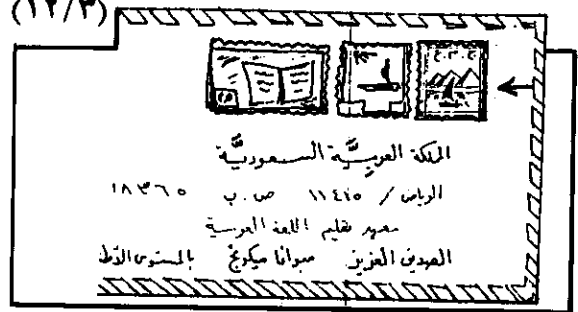 (١٢/٣)
المملكة العربيَّة السعوديَّة
الرياض / ١١٤١٥ ص . ب ١٨٣٦٥
معهد تعليم اللغة العربية
الصديق العزيز ميكونج بالمستوى الأول